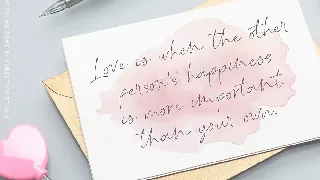 Love is when the other
person's happiness
is more important
than your own.